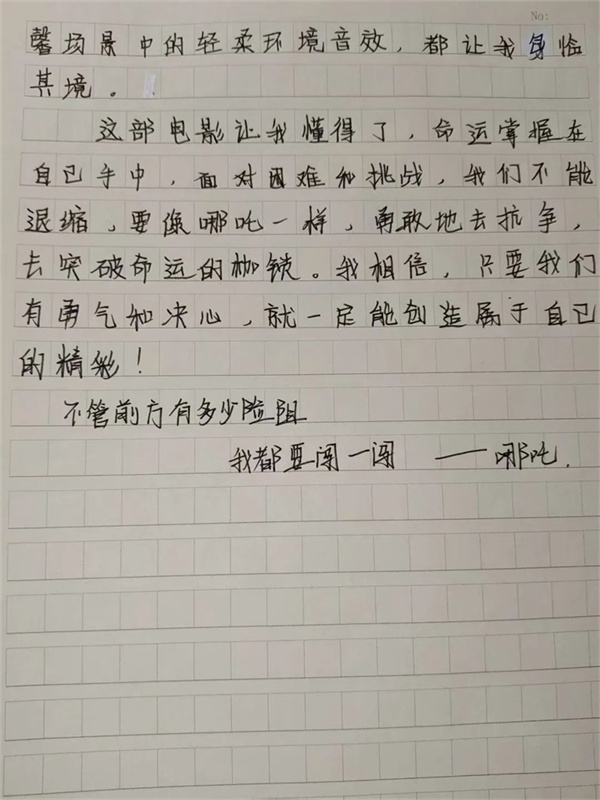 No:
馨场景中的轻柔环境音效，都让我身临
其境。
这部电影让我懂得了，命运掌握在
自己手中，面对困难和挑战，我们不能
退缩，要像哪吒一样，勇敢地去抗争，
去突破命运的枷锁。我相信，只要我们
有勇气和决心，就一定能创造属于自己
的精彩！
不管前方有多少险阻
我都要闯一闯 ——哪吒.